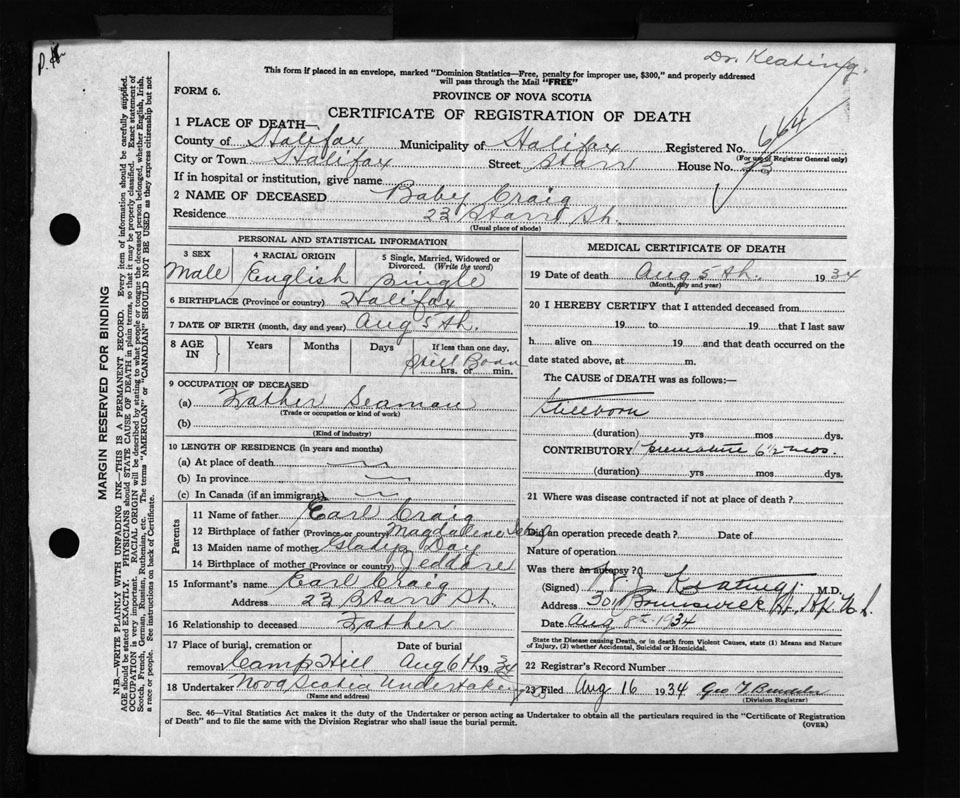 Dr. Keating.
This form if placed in an envelope, marked "Dominion Statistics—Free, penalty for improper use, $300," and properly addressed
will pass through the Mail "FREE"
FORM 6.
PROVINCE OF NOVA SCOTIA
CERTIFICATE OF REGISTRATION OF DEATH
1 PLACE OF DEATH—
County of Halifax Municipality of Halifax Registered No. 664
(For use of Registrar General only)
City or Town Halifax Street Starr House No. 23
If in hospital or institution, give name
2 NAME OF DECEASED Baby Craig
Residence 23 Starr St.
(Usual place of abode)
PERSONAL AND STATISTICAL INFORMATION
3 SEX Male
4 RACIAL ORIGIN English
5 Single, Married, Widowed or Divorced. (Write the word) Single
6 BIRTHPLACE (Province or country) Halifax
7 DATE OF BIRTH (month, day and year) Aug 5th.
8 AGE IN Years Months Days If less than one day,
Still Born
hrs. or min.
9 OCCUPATION OF DECEASED
(a) Father Seaman
(Trade or occupation or kind of work)
(b)
(Kind of industry)
10 LENGTH OF RESIDENCE (in years and months)
(a) At place of death
(b) In province
(c) In Canada (if an immigrant)
Parents
11 Name of father Earl Craig
12 Birthplace of father (Province or country) Magdalene
13 Maiden name of mother Gladys Day
14 Birthplace of mother (Province or country) Jeddore
15 Informant's name Earl Craig
Address 23 Starr St.
16 Relationship to deceased Father
17 Place of burial, cremation or removal Camp Hill Date of burial Aug 6th 1934
18 Undertaker Nova Scotia Undertaking
(Name and address)
MEDICAL CERTIFICATE OF DEATH
19 Date of death Aug 5th. 1934
(Month, day and year)
20 I HEREBY CERTIFY that I attended deceased from
19 to 19 that I last saw
h alive on 19 and that death occurred on the
date stated above, at m.
The CAUSE of DEATH was as follows:—
Stillborn
(duration) yrs mos dys.
CONTRIBUTORY Premature 6½ mos.
(duration) yrs mos dys.
21 Where was disease contracted if not at place of death?
Did an operation precede death? Date of
Nature of operation
Was there an autopsy?
(Signed) Keating M.D.
Address 301 Brunswick St.
Date Aug 8th 1934
State the Disease causing Death, or in death from Violent Causes, state (1) Means and
Nature of Injury, (2) whether Accidental, Suicidal or Homicidal.
22 Registrar's Record Number
23 Filed Aug 16 1934 Geo
(Division Registrar)
Sec. 46—Vital Statistics Act makes it the duty of the Undertaker or person acting as Undertaker to obtain all the particulars required in the "Certificate of Registration
of Death" and to file the same with the Division Registrar who shall issue the burial permit.
(OVER)
MARGIN RESERVED FOR BINDING
N.B.—WRITE PLAINLY WITH UNFADING INK—THIS IS A PERMANENT RECORD. Every item of information should be carefully supplied.
AGE should be stated EXACTLY. PHYSICIANS should STATE CAUSE OF DEATH in plain terms, so that it may be properly classified. Exact statement of
OCCUPATION is very important. RACIAL ORIGIN will be described by stating to what people or tongue the deceased person belonged, whether English, Irish,
Scotch, French, German, Russian, Ruthenian, etc. The terms "AMERICAN" or "CANADIAN" SHOULD NOT BE USED as they express citizenship but not
a race or people. See instructions on back of Certificate.